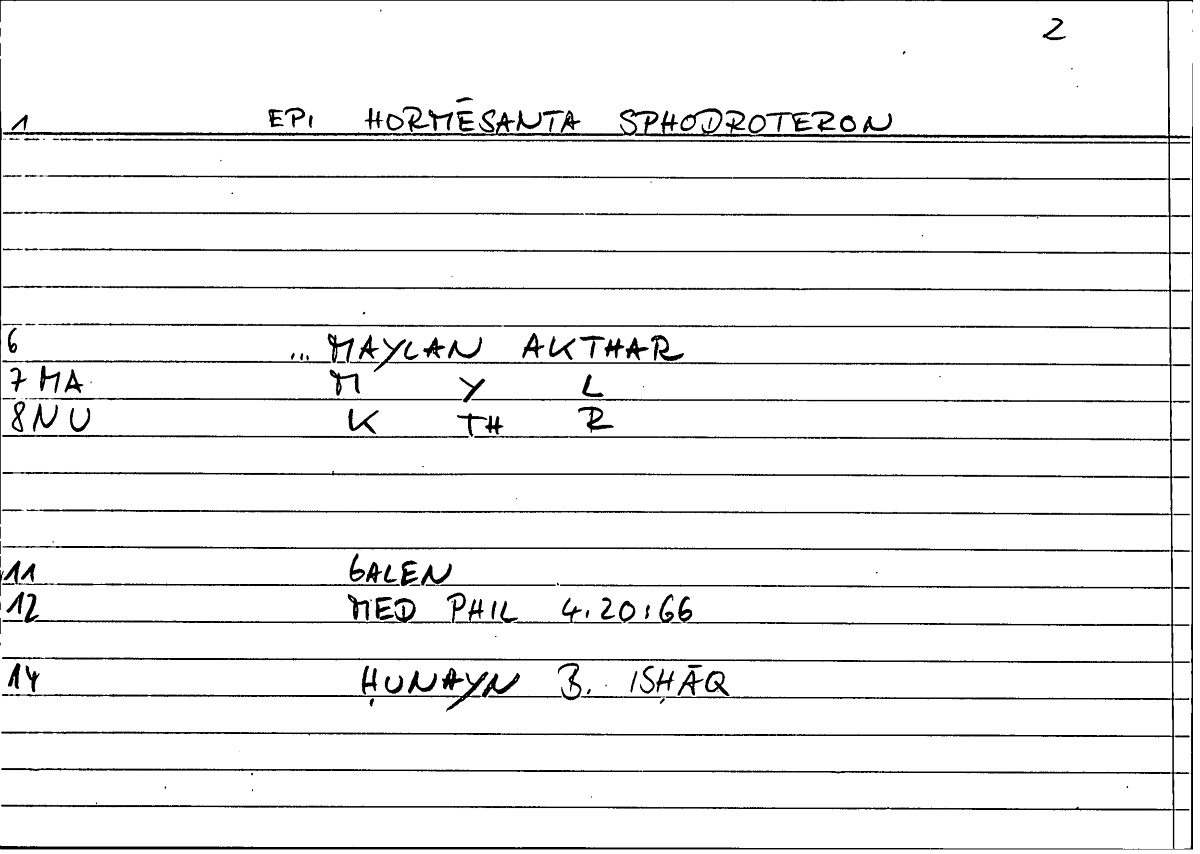 2
1 EPI HORMĒSANTA SPHODROTERON
6 ... MAYLAN AKTHAR
7 MA M Y L
8 NU K TH R
11 GALEN
12 MED PHIL 4.20:66
14 ḤUNAYN B. ISḤĀQ